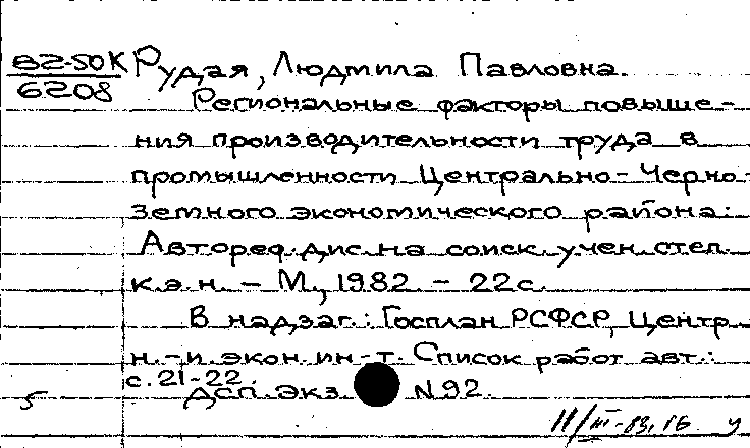 82-50К Рудая, Людмила Павловна.
6208
Региональные факторы повыше-
ния производительности труда в
промышленности Центрально-Черно-
земного экономического района:
Автореф. дис. на соиск. учен. степ.
к.э.н. – М., 1982. – 22 с.
В надзаг.: Госплан РСФСР, Центр.
н.-и. экон. ин-т. Список работ авт.:
с. 21-22.
ДСП. Экз. N 92.
5
11/III-83,